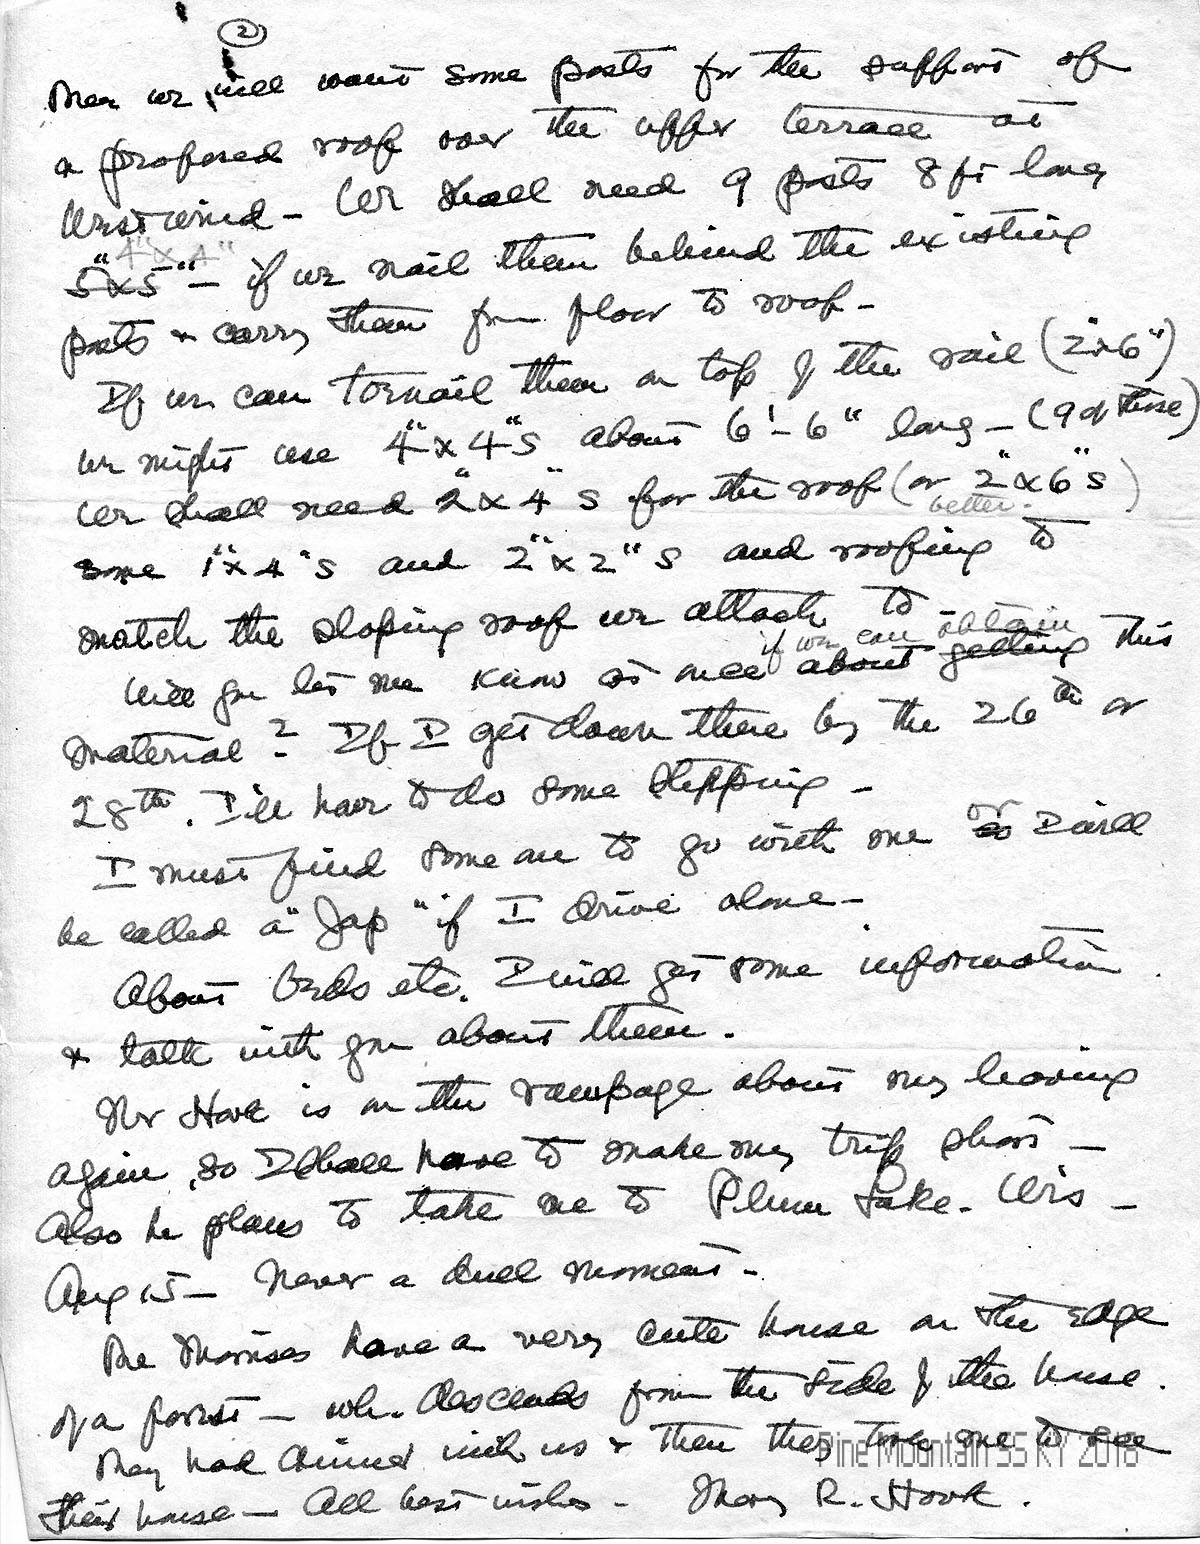 2
Then we will want some posts for the support of
a proposed roof over the upper terrace at
West Wind - We shall need 9 posts 8 ft long
4"x4"
5"x5" - if we nail them behind the existing
posts & carry them from floor to roof -
If we can toenail them on top of the rail (2"x6")
we might use 4"x4"s about 6'-6" long - (9 of these)
We shall need 2"x4"s for the roof (or 2"x6"s)
better.
some 1"x4"s and 2"x2"s and roofing to
match the sloping roof we attach to -
if we can obtain
Will you let me know at once about getting this
material? If I get down there by the 26th or
28th. I'll have to do some stepping -
I must find some one to go with me so or I will
be called a "Jap" if I drive alone -
About beds etc. I will get some information
& talk with you about them.
Mr Hook is on the rampage about my leaving
again, so I shall have to make my trip short -
Also he plans to take me to Plum Lake. Wis -
Aug 15 - Never a dull moment -
The Morrises have a very cute house on the edge
of a forest - wh. descends from the side of the house.
They had dinner with us & then they took me to see
their house - All best wishes - Mary R. Hook.
Pine Mountain SS KY 2016